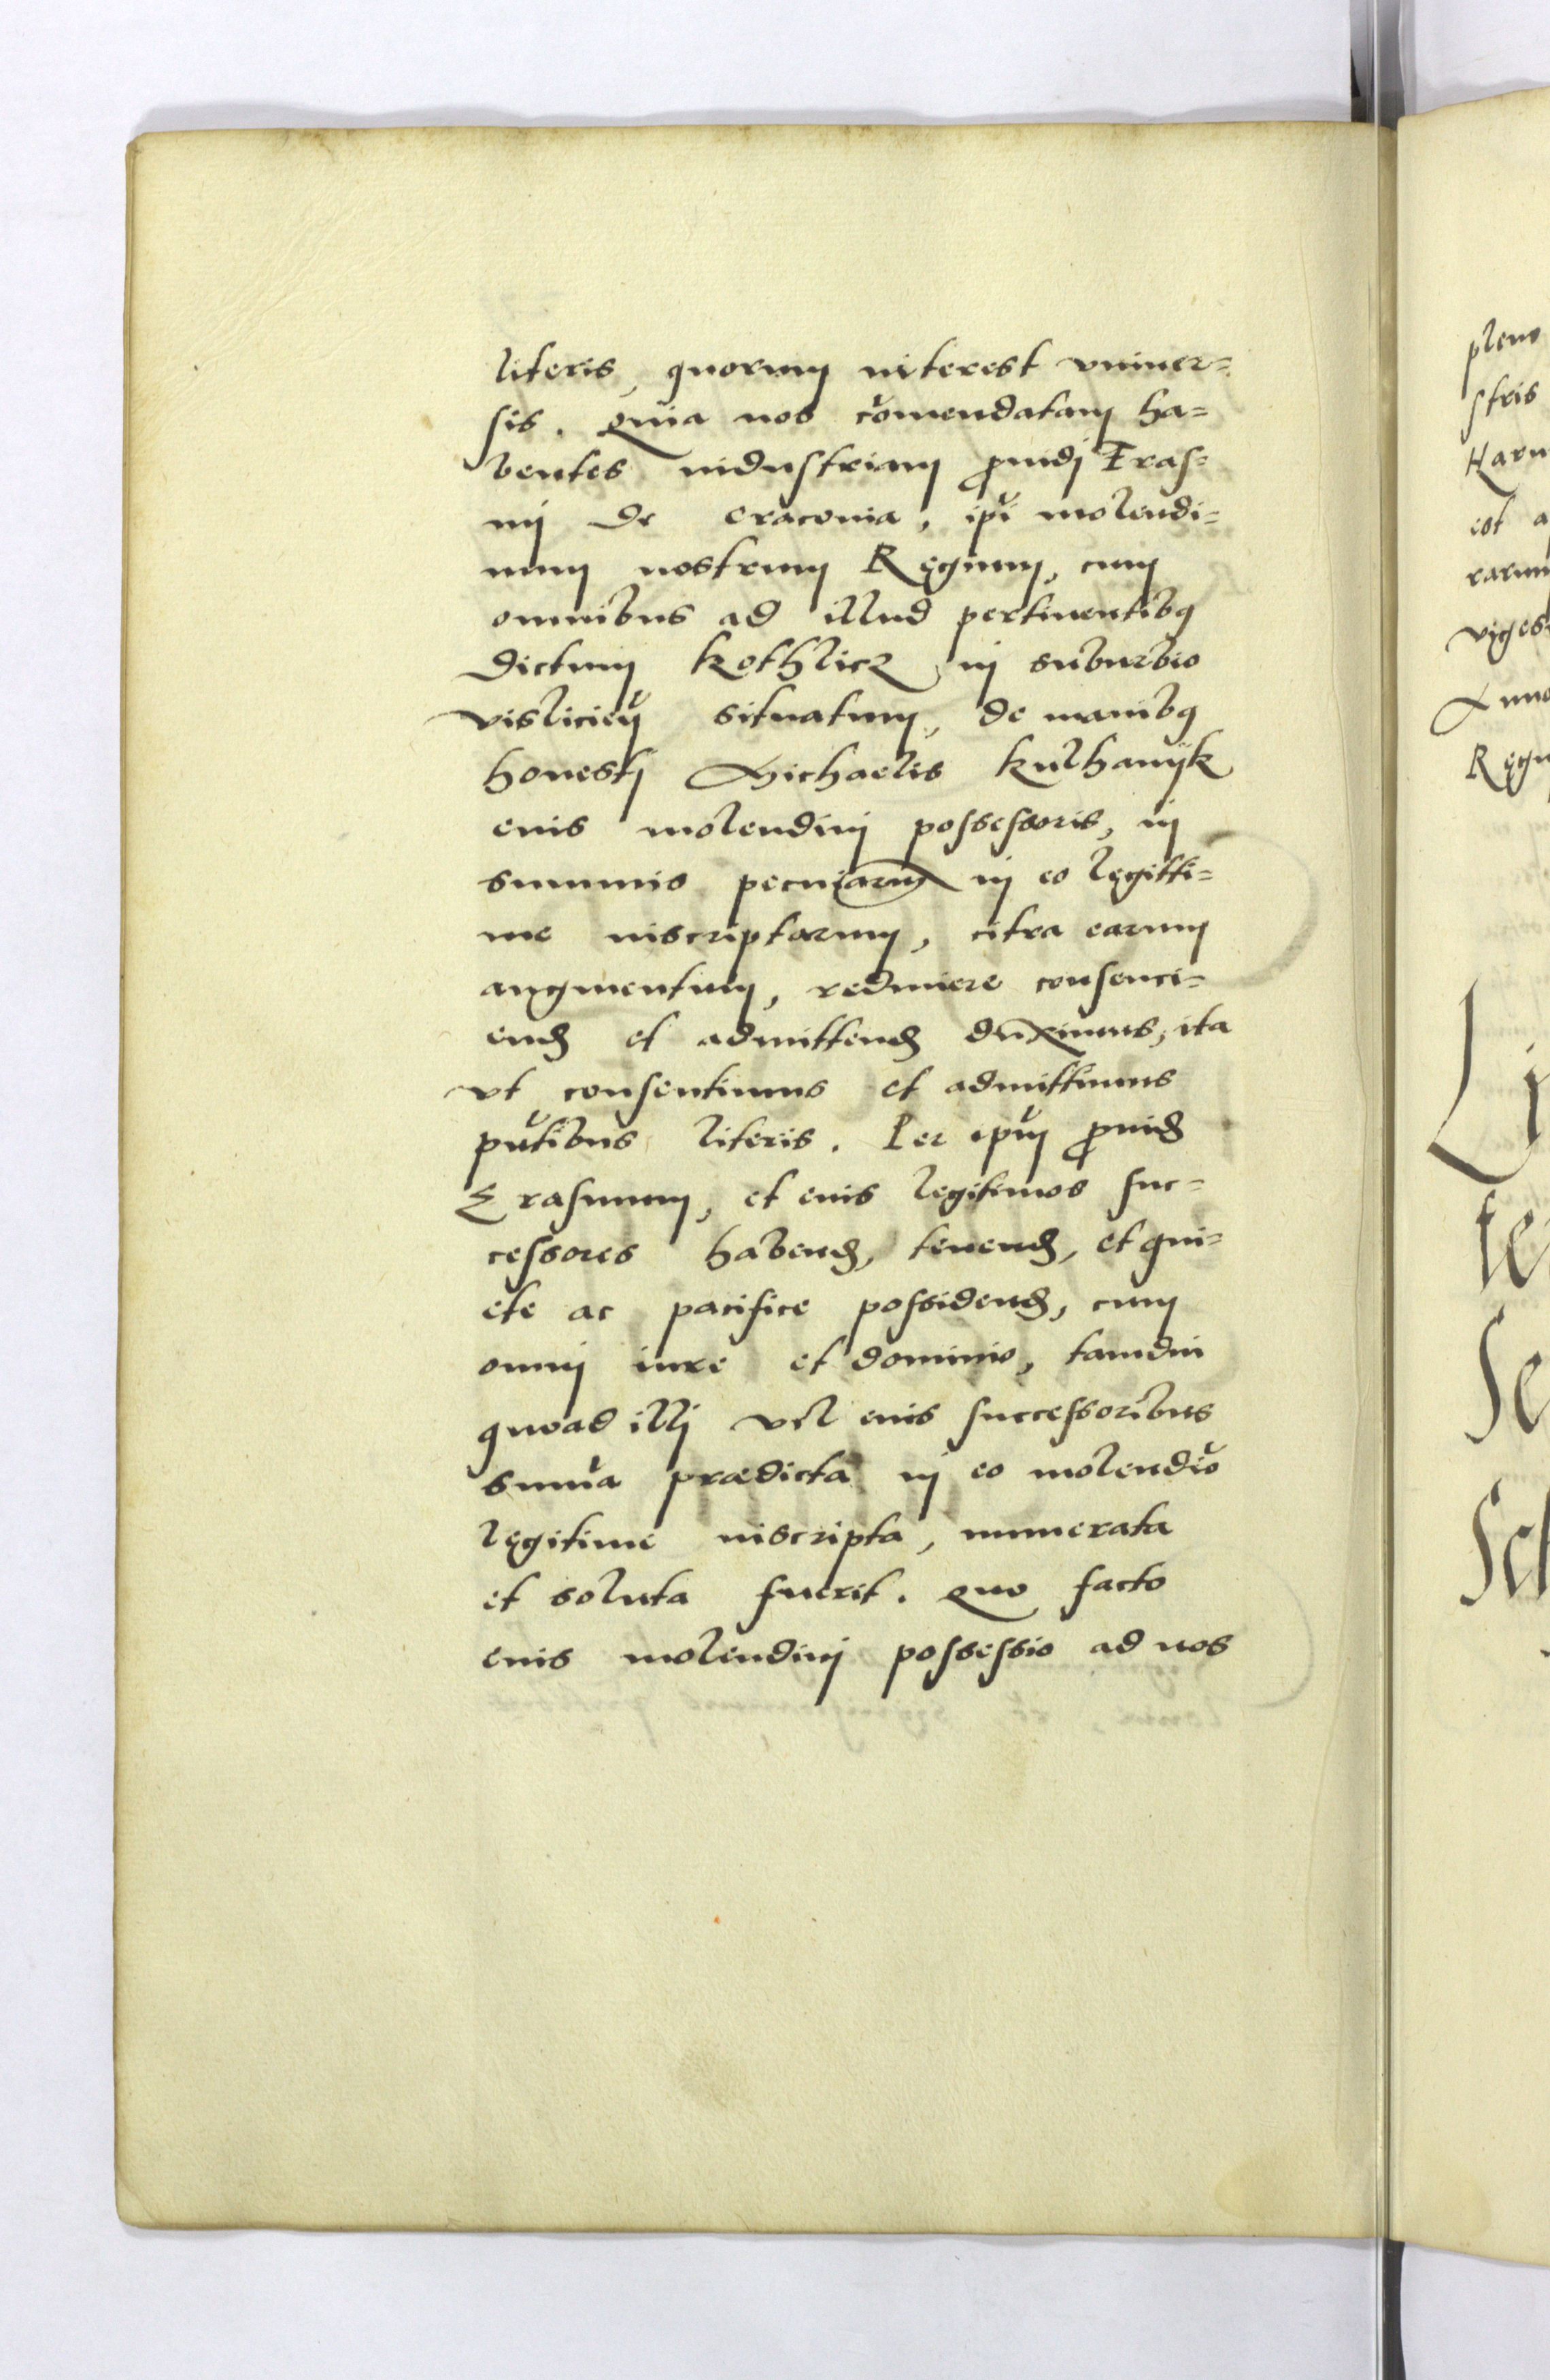 literis, quorum interest vniuer=
sis. Quia nos co͞mendatam ha=
bentes industriam ꝓuidj Eras=
mj de Cracouia, ip͞i molendi=
num nostrum Regium, cum
omnibus ad illud pertinentibꝫ
dictum Kothlicz, in suburbio
vislicien͞ situatum, de manibꝫ
honestj Michaelis Kulhanÿk
eius molendinj possessoris, in
summis pecuniarum in eo legitti=
me inscriptarum, citra earum
augmentum, redimere consenci=
end̕ et admittend̕ duximus, ita
vt consentimus et admittimus
pn͞tibus literis. Per ip͞m ꝓuid̕
Erasmum, et eius legitimos suc=
cessores habend̕, tenend̕, et qui=
ete ac pacifice possidend̕, cum
omnj iure et dominio, tamdiu
quoad illj vel eius successoribus
sum͞a praedicta in eo molendi͞o
legitime inscripta, numerata
et soluta fuerit. Quo facto
eius molendinj possessio ad nos
pleno
stris
rarum
viges
Anno
Regn
Li
te
Se
Sel